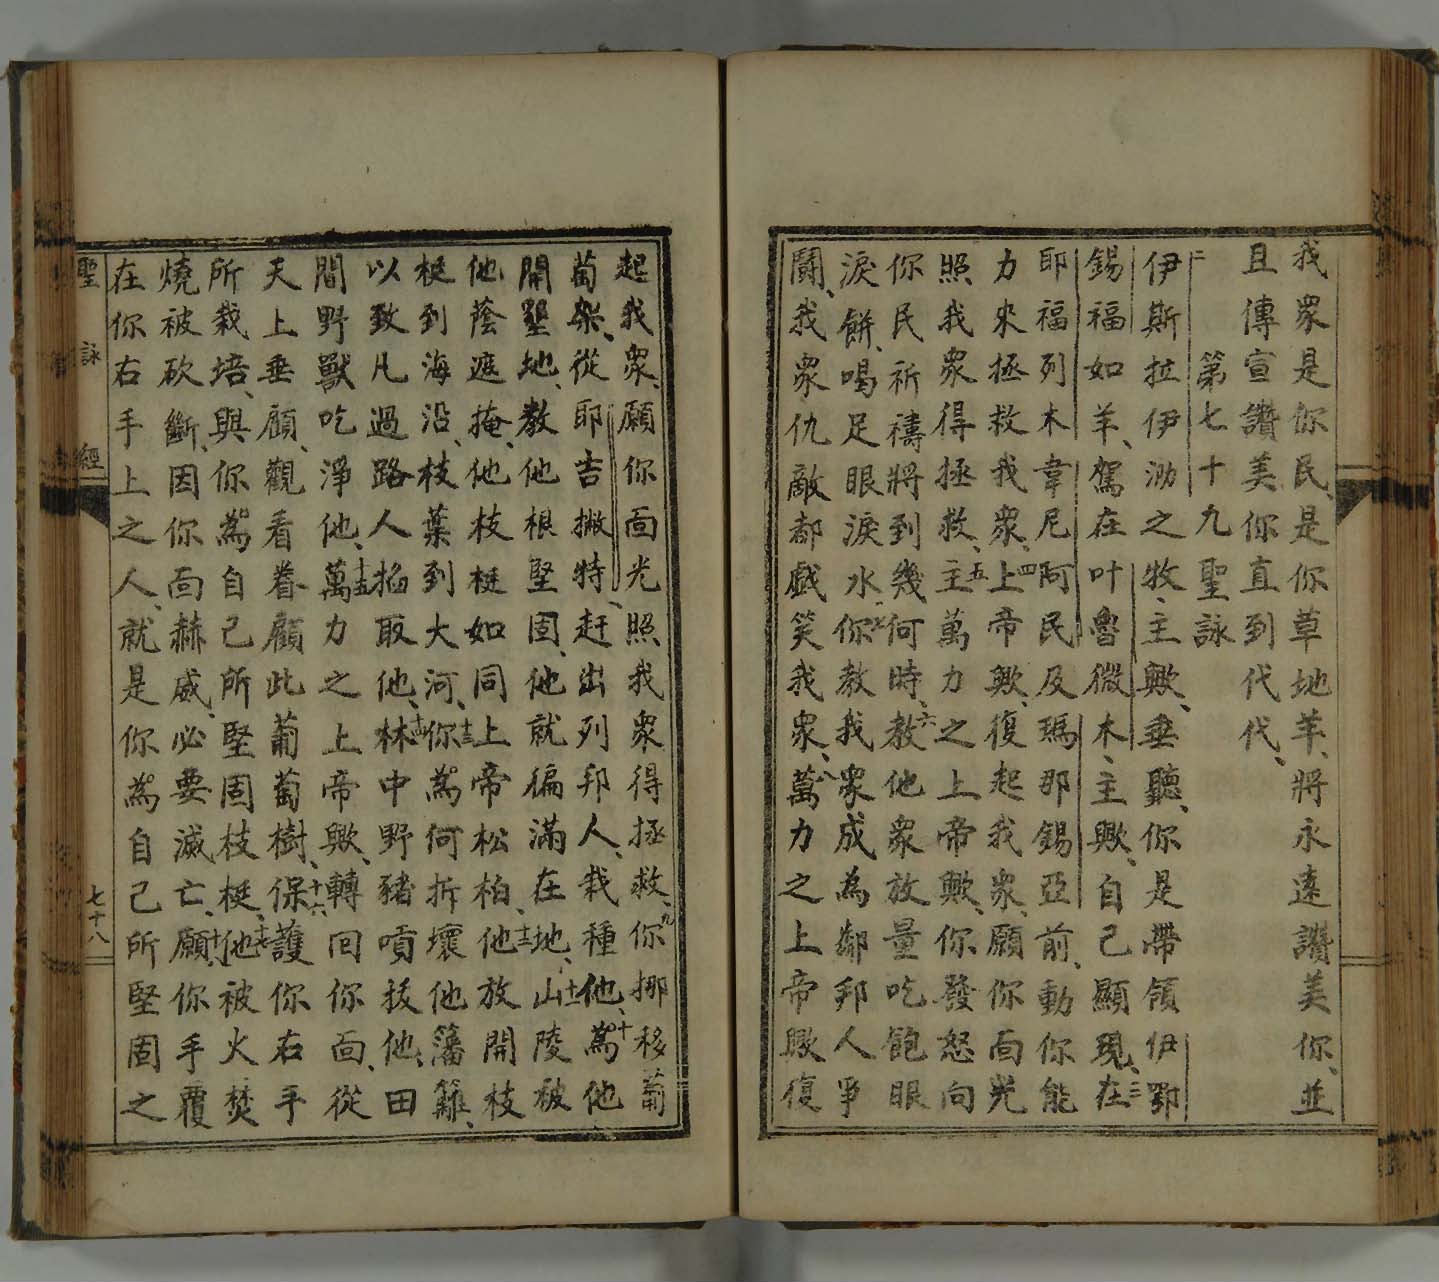 我衆是你民、是你草地羊、將永遠讚美你、並
且傳宣讚美你直到代代、
第七十九聖詠
二伊斯拉伊泐之牧、主歟、垂聽、你是帶領伊鄂
錫福如羊、駕在叶魯微木、主歟、自己顯現、三在
耶福列木韋尼阿民及瑪那錫亞前、動你能
力來拯救我衆、四上帝歟、復起我衆、願你面光
照我衆得拯救、五主萬力之上帝歟、你發怒向
你民祈禱將到幾何時、六教他衆放量吃飽眼
淚餅、喝足眼淚水、七你教我衆成為鄰邦人爭
鬪、我衆仇敵都戲笑我衆、八萬力之上帝歟復
起我衆、願你面光照、我衆得拯救、九你挪移葡
萄架、從耶吉撇特、赶出列邦人、栽種他、十為他
開墾地、教他根堅固、他就徧滿在地、十一山陵被
他蔭遮掩、他枝梃如同上帝松柏、十二他放開枝
梃到海沿、枝葉到大河、十三你為何拆壞他籓籬、
以致凡過路人掐取他、十四林中野豬嘖拔他、田
間野獸吃淨他、十五萬力之上帝歟、轉囘你面、從
天上垂顧、觀看眷顧此葡萄樹、十六保護你右手
所栽培、與你為自己所堅固枝梃、十七他被火焚
燒被砍斷、因你面赫威、必要滅亡、十八願你手覆
在你右手上之人、就是你為自己所堅固之
聖詠經
七十八